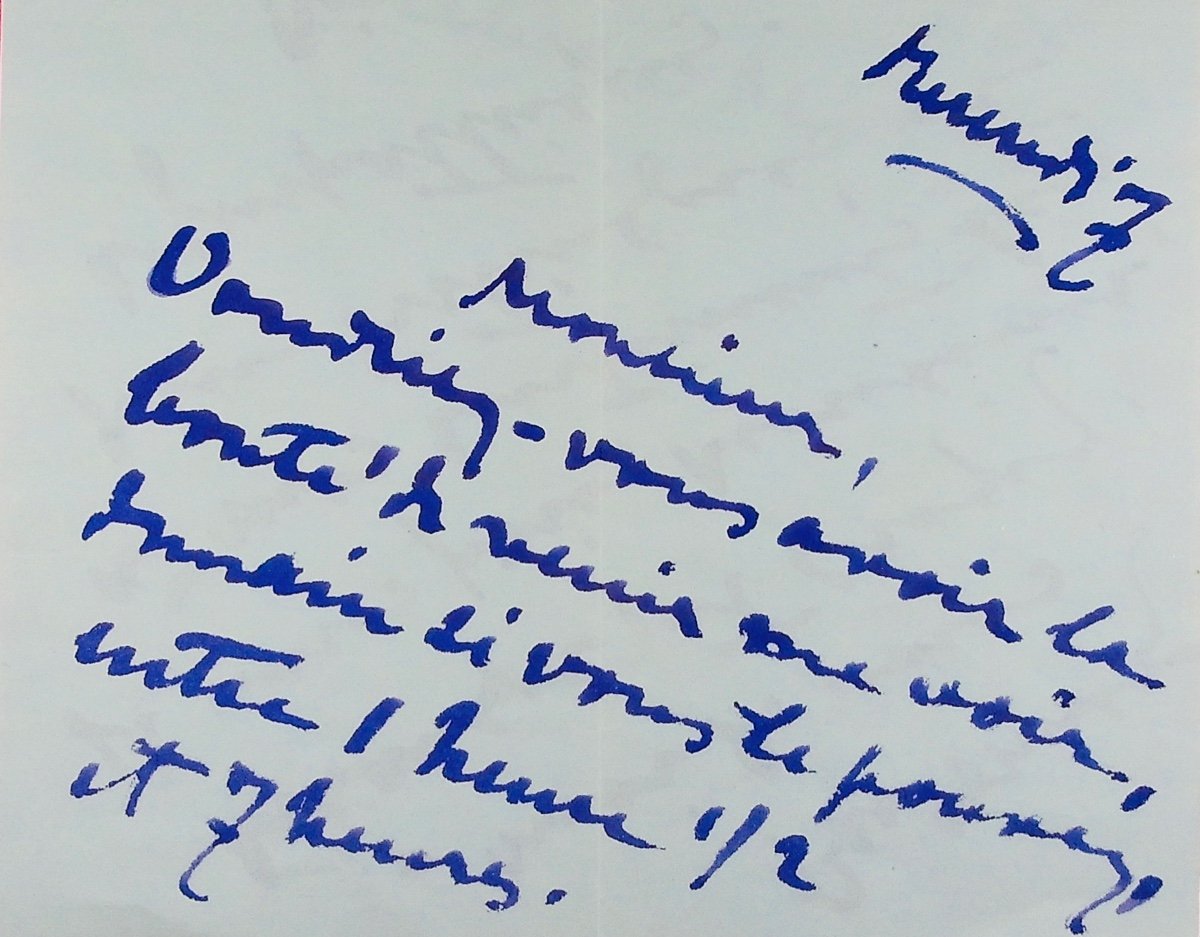 Monsieur,
Voudriez-vous avoir la
bonté de venir me voir,
demain si vous le pouvez,
entre 1 heure 1/2
et 7 heures.